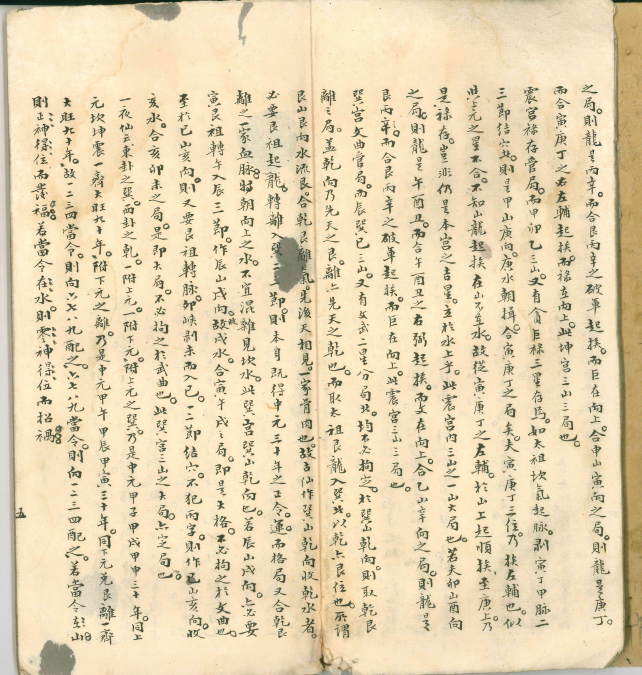 之局。則龍是丙辛。而合艮丙辛之破軍起挨。而巨在向上。合申山寅向之局。則龍是庚丁。
而合寅庚丁之右左輔起挨。而祿在向上。此坤宮三山三局也。
震宮祿存當局。而甲卯乙三山。又有貪巨祿三星存焉。如太祖坎氣起脉。剥寅丁甲脉二
三節結穴。則是甲山庚向。庚水朝揖。合寅庚丁之局矣。夫寅庚丁三位。乃挨左輔也。似
與上元之星不合。不知山龍起挨在山不在水。故從寅庚丁之左輔。於山上起順挨至庚上。乃
是祿存。豈非仍是本宮之吉星。立於水上乎。此震宮內三山之一山大局也。若夫卯山酉向
之局。則龍是午酉丑。而合午酉丑之右弼起挨。而文在向上。合乙山辛向之局。則龍是
艮丙辛。而合艮丙辛之破軍起挨。而巨在向上。此震宮三山三局也。
巽宮文曲當局。而辰巽巳三山。又有文武二星分局。此均不必拘定。於巽山乾向。則取乾艮
離之局。蓋乾向乃先天之艮。離亠先天之乾也。而取太祖艮龍入巽。此以乾亠艮位也。所謂
艮山艮向水流艮。合乾艮離氣。先後天相見。一家骨肉也。故古仙作巽山乾向收乾水者。
必要艮祖起龍。轉離入巽一二節。則本身既得中元三十年之正令。運而格局又合乾艮
離之一家血脉。朝向上之水。不宜混雜見坎水。此巽宮巽山乾向也。若辰山戌向。亠必要
寅艮祖轉午入辰三節。作辰山戌向。故收戌水。合寅午戌之局。即是大格。不必拘之於文曲也。
至於巳山亥向。則又要艮祖轉脉卯峽剥未而入巳。一二節結穴。不犯丙字。則作巳山亥向。收
亥水。合亥卯未之局。是即大局。不必拘之於武曲也。此巽宮三山之大局。亠定局也。
一夜仙云。東卦之巽。西卦之乾。一附上元。一附下元。附上元之巽。乃是中元甲子甲戌甲申三十年。同上
元坎坤震一齊大旺九十年。附下元之離。乃是中元甲午甲辰甲寅三十年。同下元兌艮離一齊
大旺九十年。故一二三四當令。則向六七八九配之。六七八九當令。則向一二三四配之。若當令在山
則正神得位而發福。若當令在水。則零神得位而招禍。
五